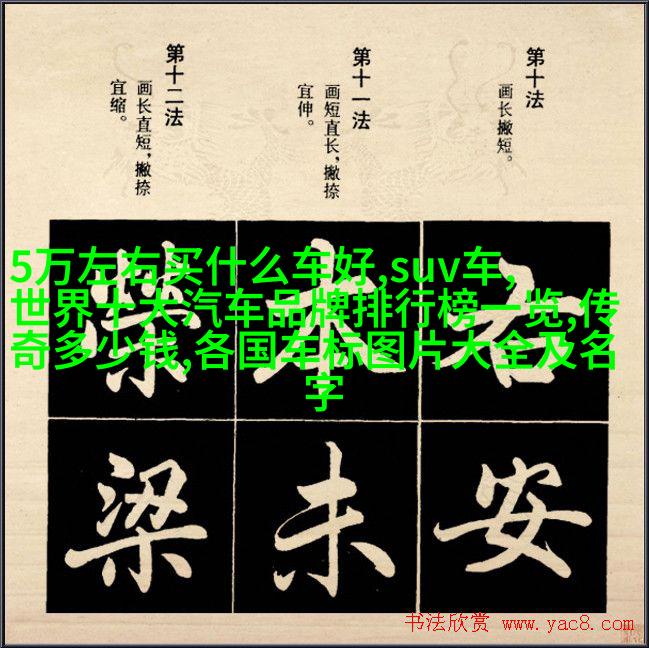 第十法
画长撇短。
第十一法
画短直长，撇捺
宜伸。
第十二法
画长直短，撇捺
宜缩。
5万左右买什么车好,suv车,
世界十大汽车品牌排行榜一览,传
奇多少钱,各国车标图片大全及名
字
右
安
未
梁
书法欣赏 www.yac8.com